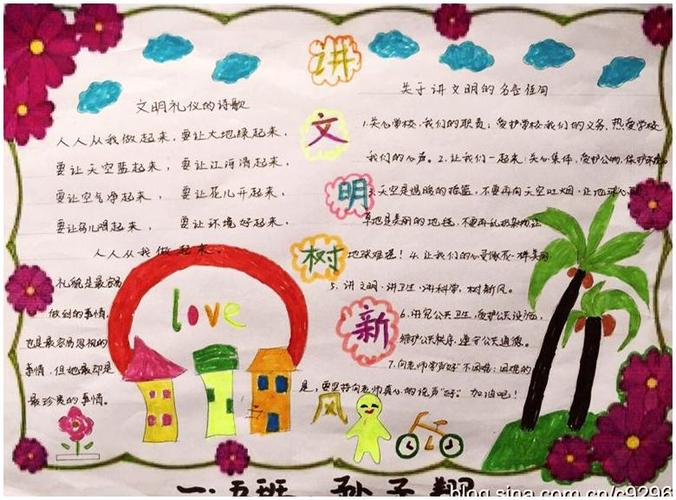 讲
文
明
树
新
风
文明礼仪的诗歌
人人从我做起来，要让大地绿起来，
要让天空蓝起来，要让江河清起来，
要让空气净起来，要让花儿开起来，
要让鸟儿唱起来，要让环境好起来，
人人从我做起来。
礼貌是最容易
做到的事情，
也是最容易忽视的
事情，但她却是
最珍贵的事情。
love
关于讲文明的名言佳句
1.关心学校，我们的职责；爱护学校我们的义务，热爱学校
我们的心声。2.让我们一起来，关心集体，爱护公物，保护环境。
3.天空是鸟的摇篮，不要再向天空吐烟，让地球
草地是美丽的地毯，不要再乱
地球难逃！4.让我们的心灵像花一样美丽
5.讲文明，讲卫生，讲科学，树新风。
6.讲究公共卫生，爱护公共设施，
维护公共秩序，遵守公共道德。
7.向老师学声好不困难；困难的
是，要坚持向老师真心的说声"好"。加油吧！
一.五班 孙子翔
blog.sina.com.cn/c9296